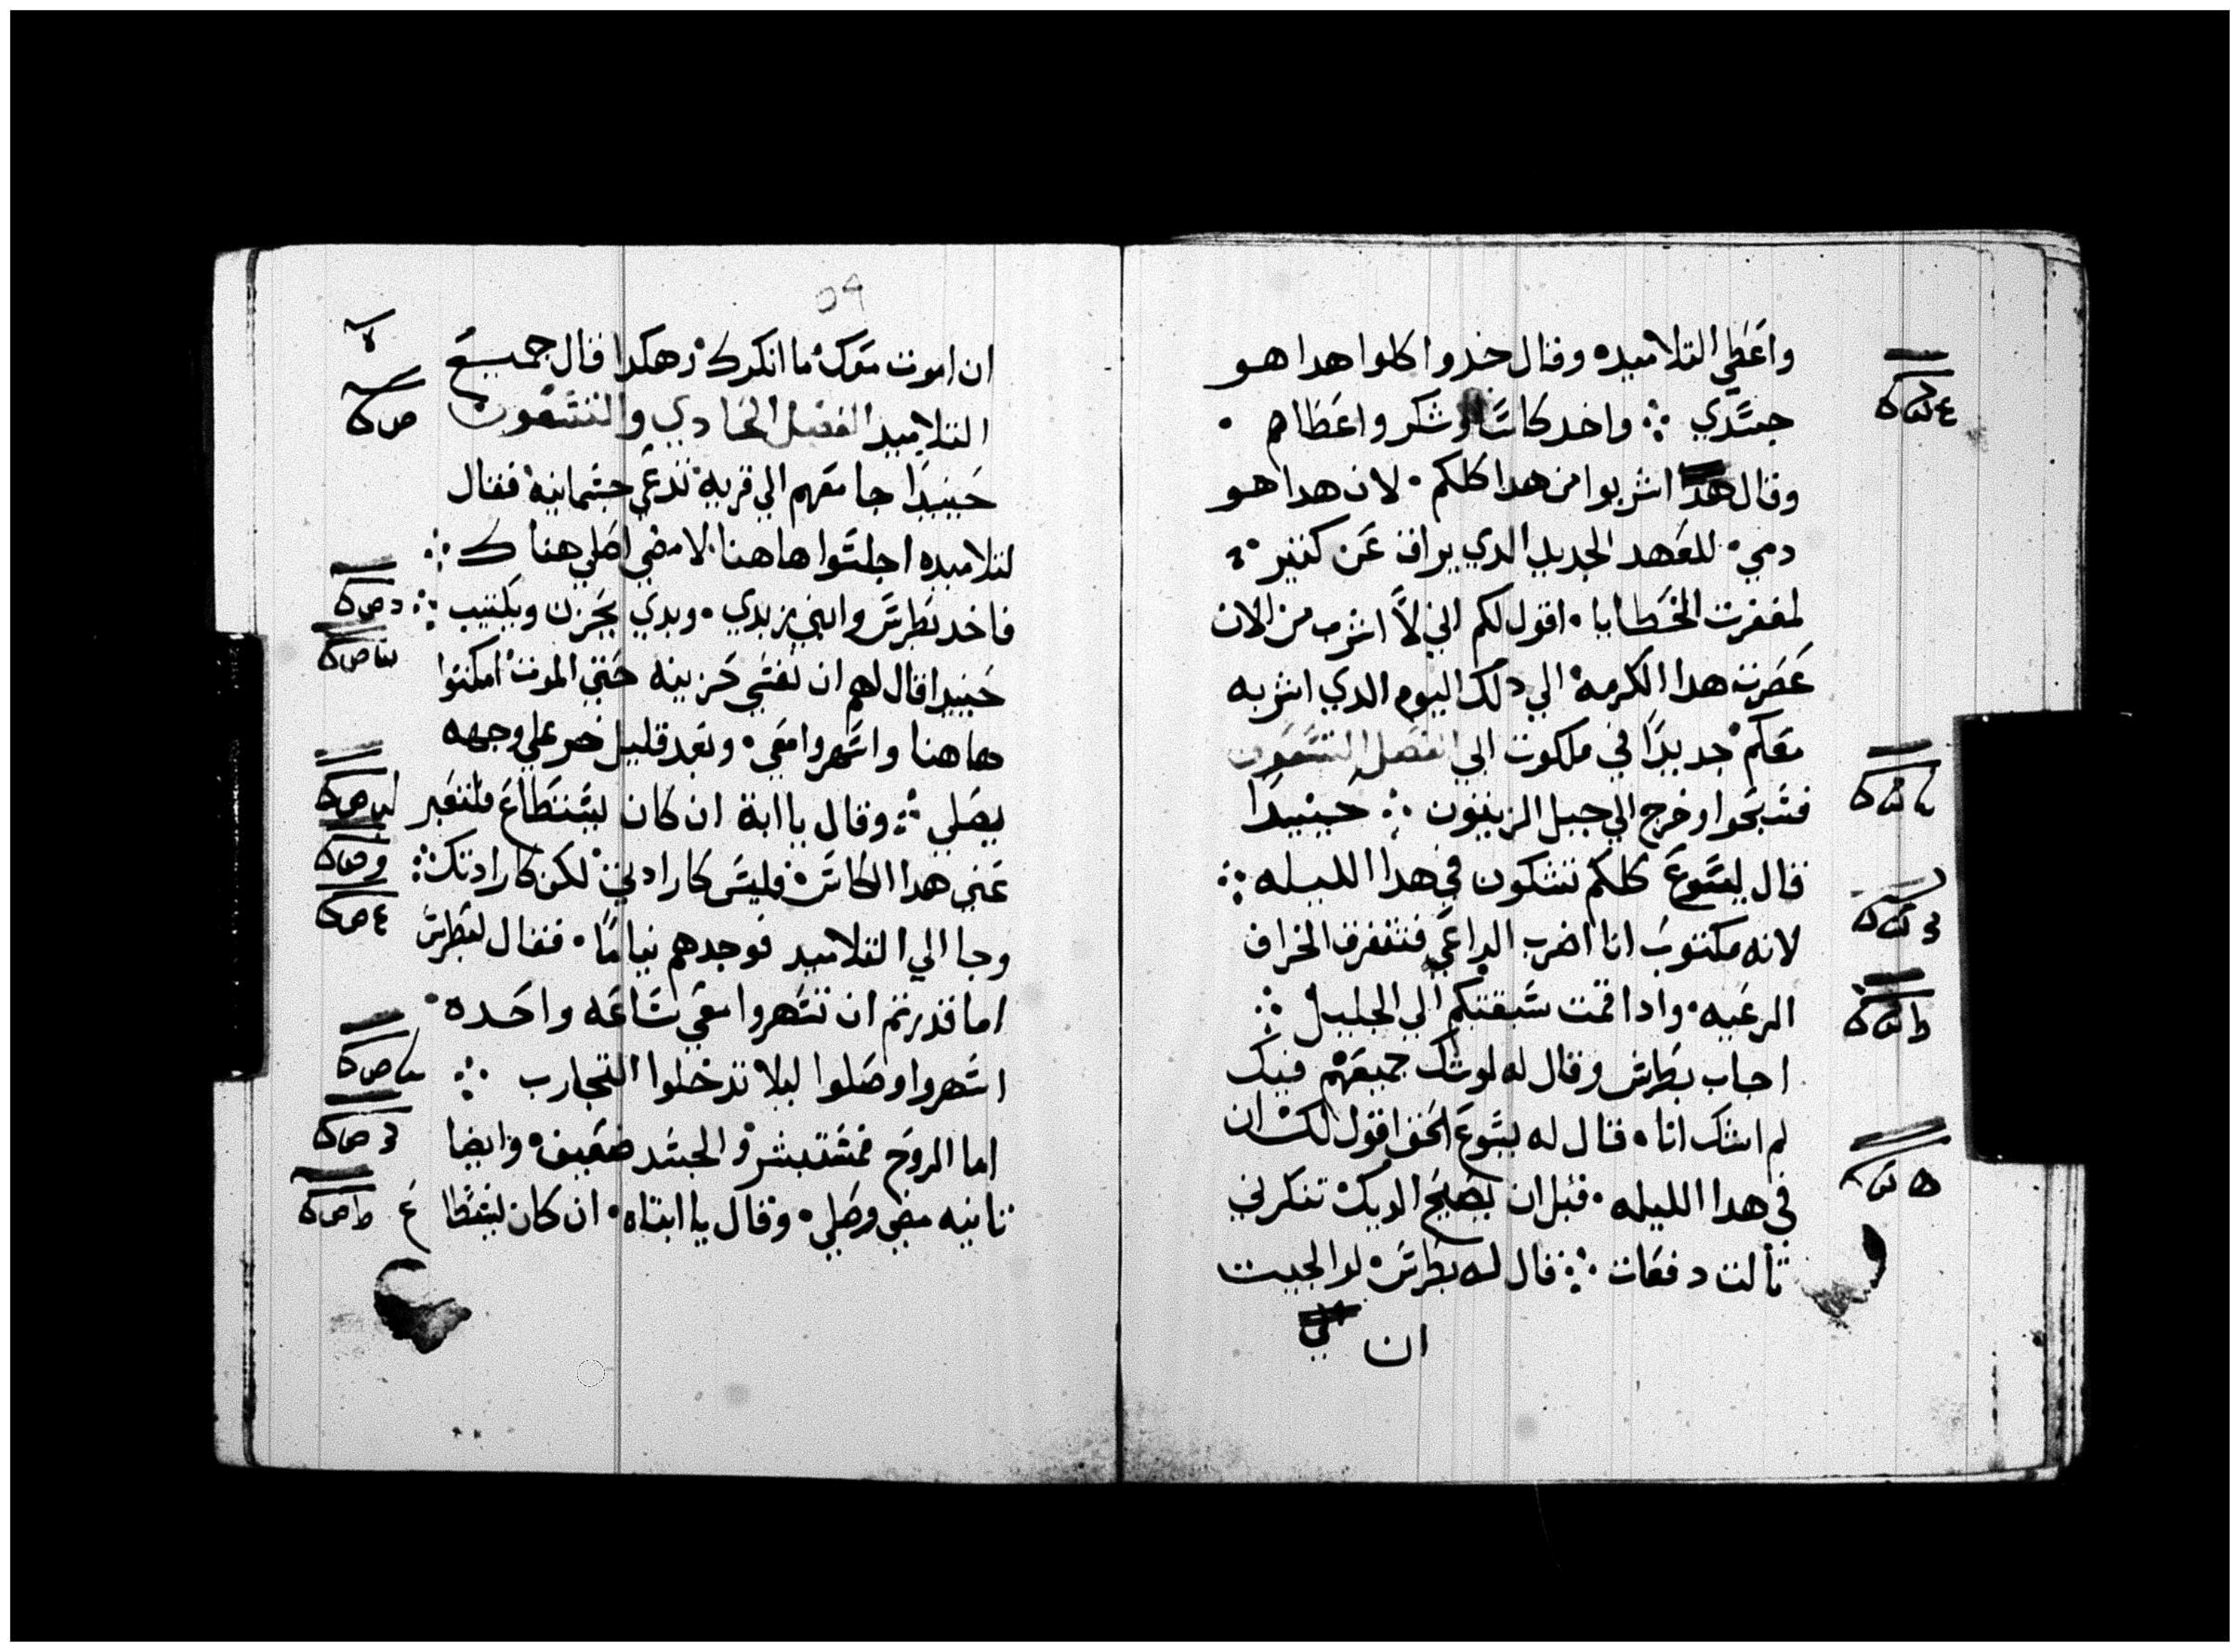 واعطي التلاميده وقال خدوا كلوا هدا هو
جسدي ؞ واخد كاسا وشكر واعطاهم ٠
وقال هدا اشربوا من هدا كلكم ٠ لان هدا هو
دمي ٠ للعهد الجديد الدي يراق عن كتير ٠
لمغفرت الخطايا ٠ اقول لكم اني لا اشرب من الان
عصرت هدا الكرمه الي دلك اليوم الدي اشربه
معكم جديدا في ملكوت ابي الفصل التسعون
فسبحوا وخرج الي جبل الزيتون ؞ حينيدا
قال يسوع كلكم تشكون في هدا الليله ؞
لانه مكتوب انا اضرب الراعي فتتفرق الخراف
الرعيه ٠ وادا قمت سبقتكم الي الجليل ؞
اجاب بطرس وقال له لو شك جميعهم فيك
لم اشك انا ٠ قال له يسوع الحق اقول لك ان
في هدا الليله ٠ قبل ان يصيح الديك تنكرني
تالت دفعات ؞ قال له بطرس لو الجيت
ان
٥٩
ان اموت معك ما انكرك وهكدا قال جميع
التلاميد الفصل الحادي والتسعون
حينيدا جا معهم الي قريه تدعي جسمانيه فقال
لتلاميده اجلسوا هاهنا لامضي اصلي هناك ؞
فاخد بطرس وابني زبدي ٠ وبدي يحزن ويكتيب ؞
حينيدا قال لهم ان نفسي حزينه حتي الموت امكتوا
هاهنا واسهروا معي ٠ وبعد قليل خر علي وجهه
يصلي ؞ وقال يا ابة ان كان يستطاع فلتعبر
عني هدا الكاس ٠ فليس كارادتي لكن كارادتك ؞
وجا الي التلاميد فوجدهم نياما ٠ فقال لبطرس
اما قدرتم ان تسهروا معي ساعه واحده ٠
اسهروا وصلوا ليلا تدخلوا التجارب ؞
اما الروح فمستبشر والجسد ضعيف ٠ وايضا
تانيه مضي وصلي ٠ وقال يا ابتاه ٠ ان كان ليتطا ع